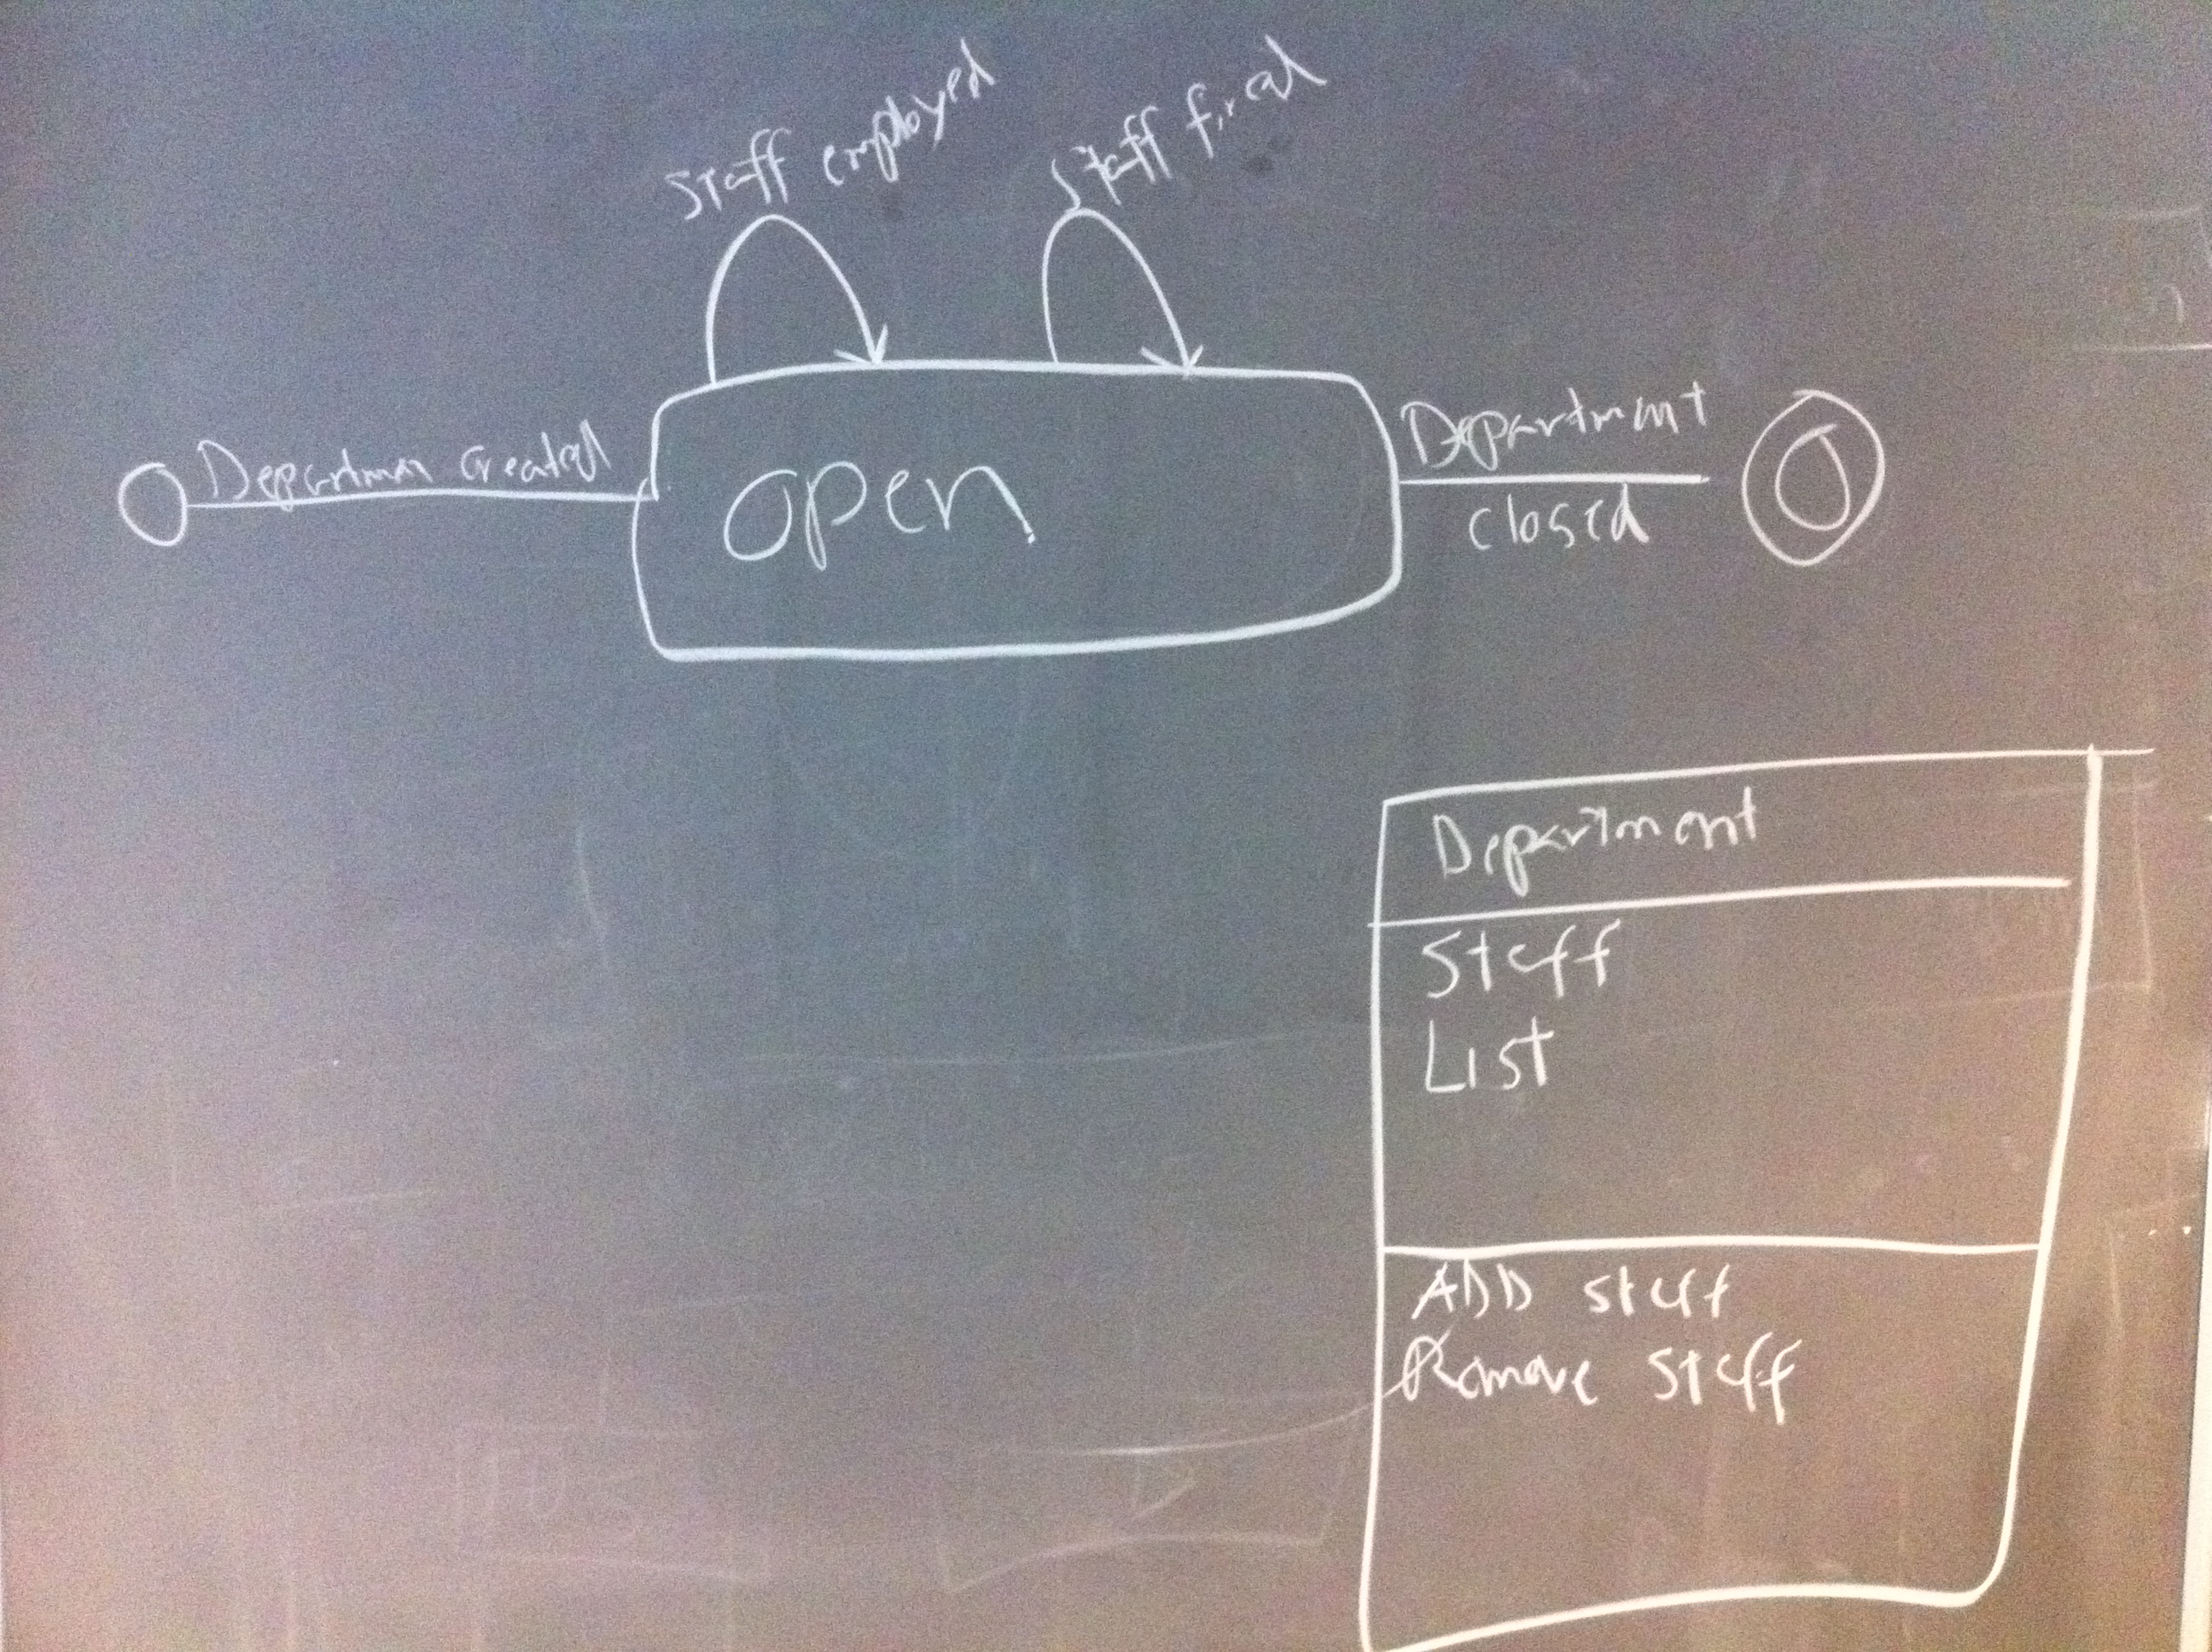 Staff employed
Staff fired
Departmen created
open
Department
closed
Department
Staff
List
ADD staff
Remove staff